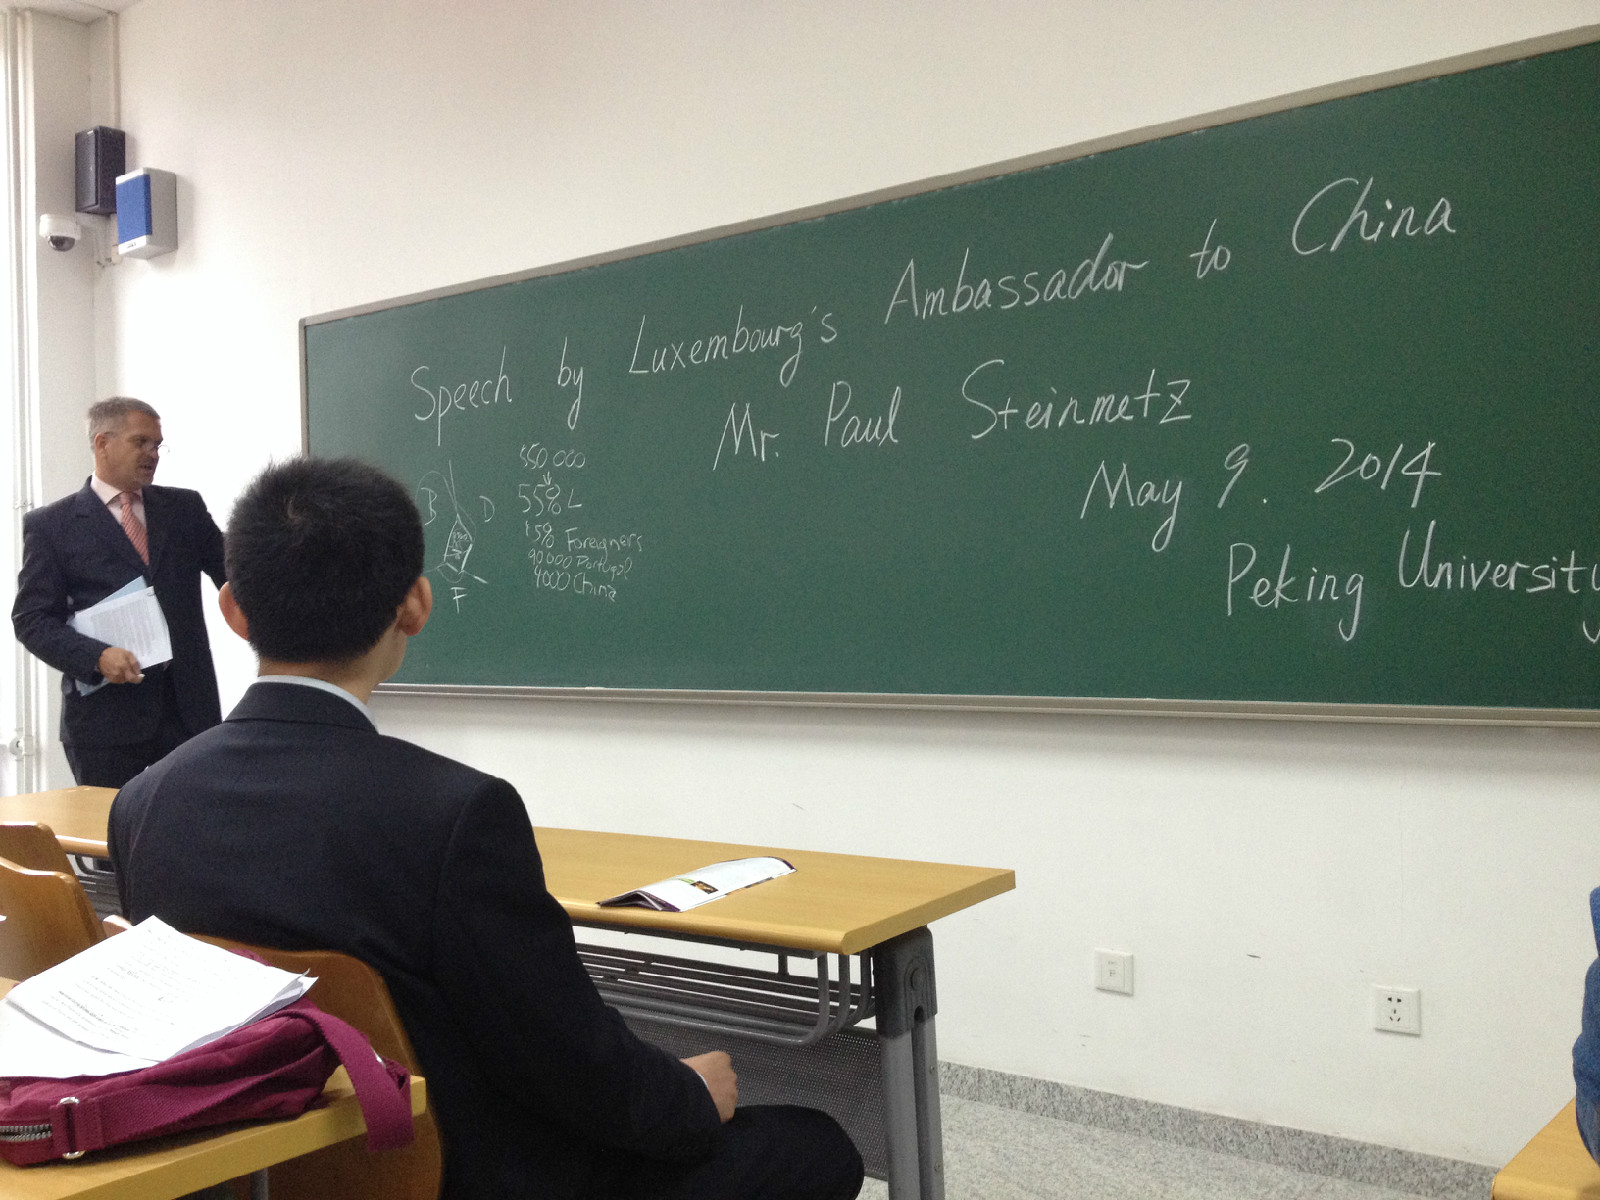 Speech by Luxembourg's Ambassador to China
Mr. Paul Steinmetz
May 9. 2014
Peking University
B D
F
550 000
55% L
45% Foreigners
90000
4000 China